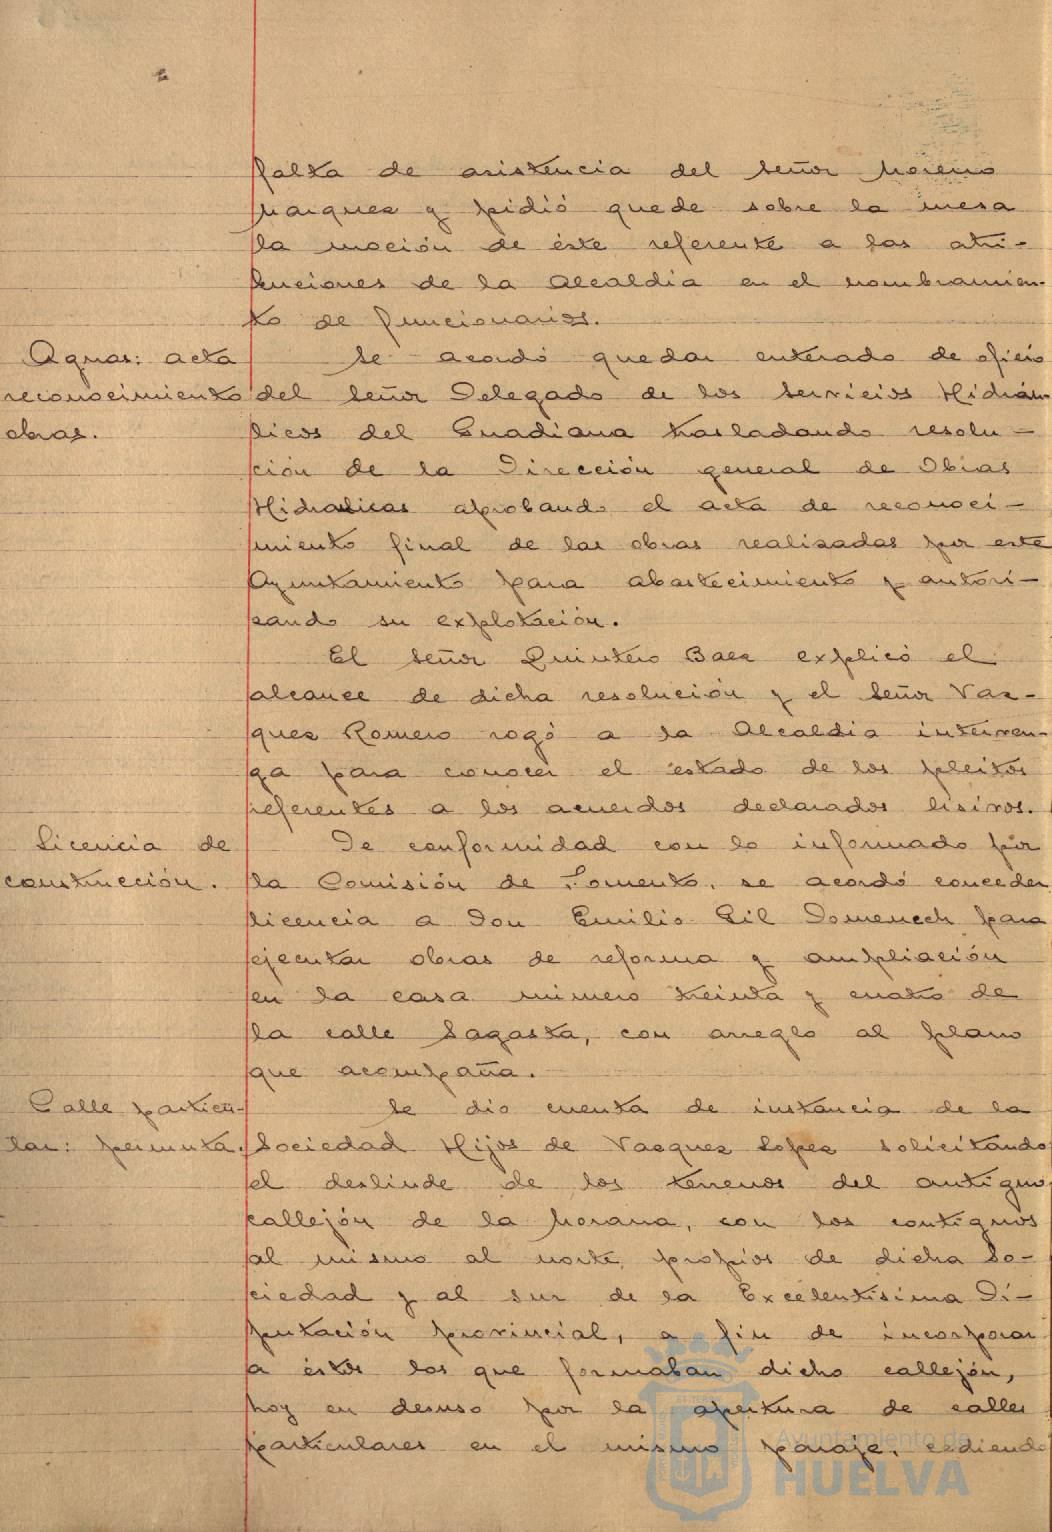 falta de asistencia del Señor Moreno
Marquez y pidió quede sobre la mesa
la moción de éste referente a las atri-
buciones de la Alcaldia en el nombramien-
to de funcionarios.
Aguas: acta
reconocimiento
obras.
Se acordó quedar enterado de oficio
del Señor Delegado de los Servicios Hidráu
licos del Guadiana trasladando resolu-
ción de la Dirección general de Obras
Hidraulicas aprobando el acta de reconoci-
miento final de las obras realizadas por este
Ayuntamiento para abastecimiento y autori-
zando su explotación.
El Señor Quintero Baez explicó el
alcance de dicha resolución y el Señor Vaz-
quez Romero rogó a la Alcaldia interven-
ga para conocer el estado de los pleitos
referentes a los acuerdos declarados lisivos.
Licencia de
construcción.
De conformidad con lo informado por
la Comisión de Fomento, se acordó conceder
licencia a Don Emilio Gil Domenech para
ejecutar obras de reforma y ampliación
en la casa número treinta y cuatro de
la calle Sagasta, con arreglo al plano
que acompaña.
Calle particu-
lar: permuta.
Se dio cuenta de instancia de la
Sociedad Hijos de Vazquez Lopez solicitando
el deslinde de los terrenos del antiguo
callejón de la Morana, con los contiguos
al mismo al norte, propios de dicha So-
ciedad y al sur de la Excelentisima Di-
putación provincial, a fin de incorporar
a éstos los que formaban dicho callejón,
hoy en desuso por la apertura de calles
particulares en el mismo paraje, cediendo
Ayuntamiento de
HUELVA